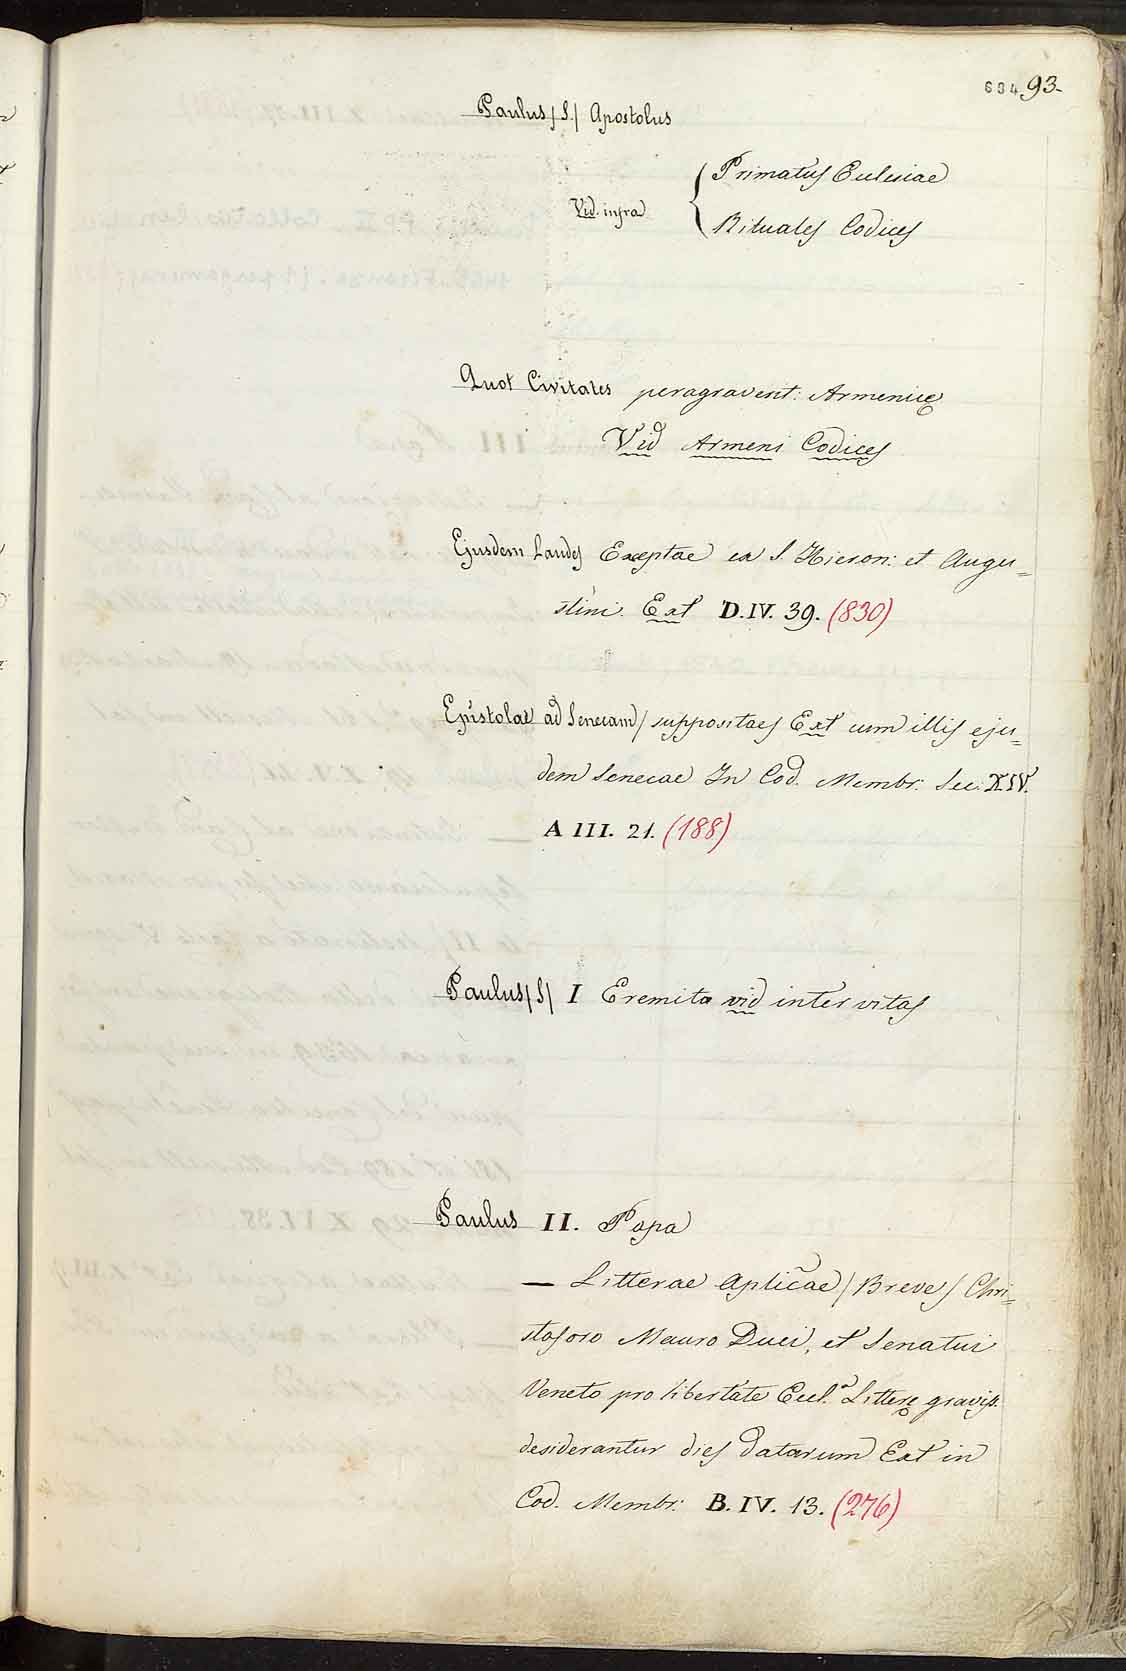 634 93.
Paulus /S./ Apostolus
Vid. infra { Primatus Eclesiae
Rituales Codices
Quot Civitates peragravent: Armenice
Vid Armeni Codices
Ejusdem Laudes Exceptae ex S. Hieron: et Augu=
stini. Ext D. IV. 39. (830)
Epistolae ad Senecam / suppositaes Ext cum illis eju=
dem Senecae In Cod. Membr: Sec. XIV.
A III. 21. (188)
Paulus /S/ I Eremita vid inter vitas
Paulus II. Papa
— Litterae Aplicae / Breve / Chri=
stoforo Mauro Duci, et Senatui
Veneto pro libertate Eccl.a Litterę graviss.
desiderantur dies datarum Ext in
Cod. Membr: B. IV. 13. (276)